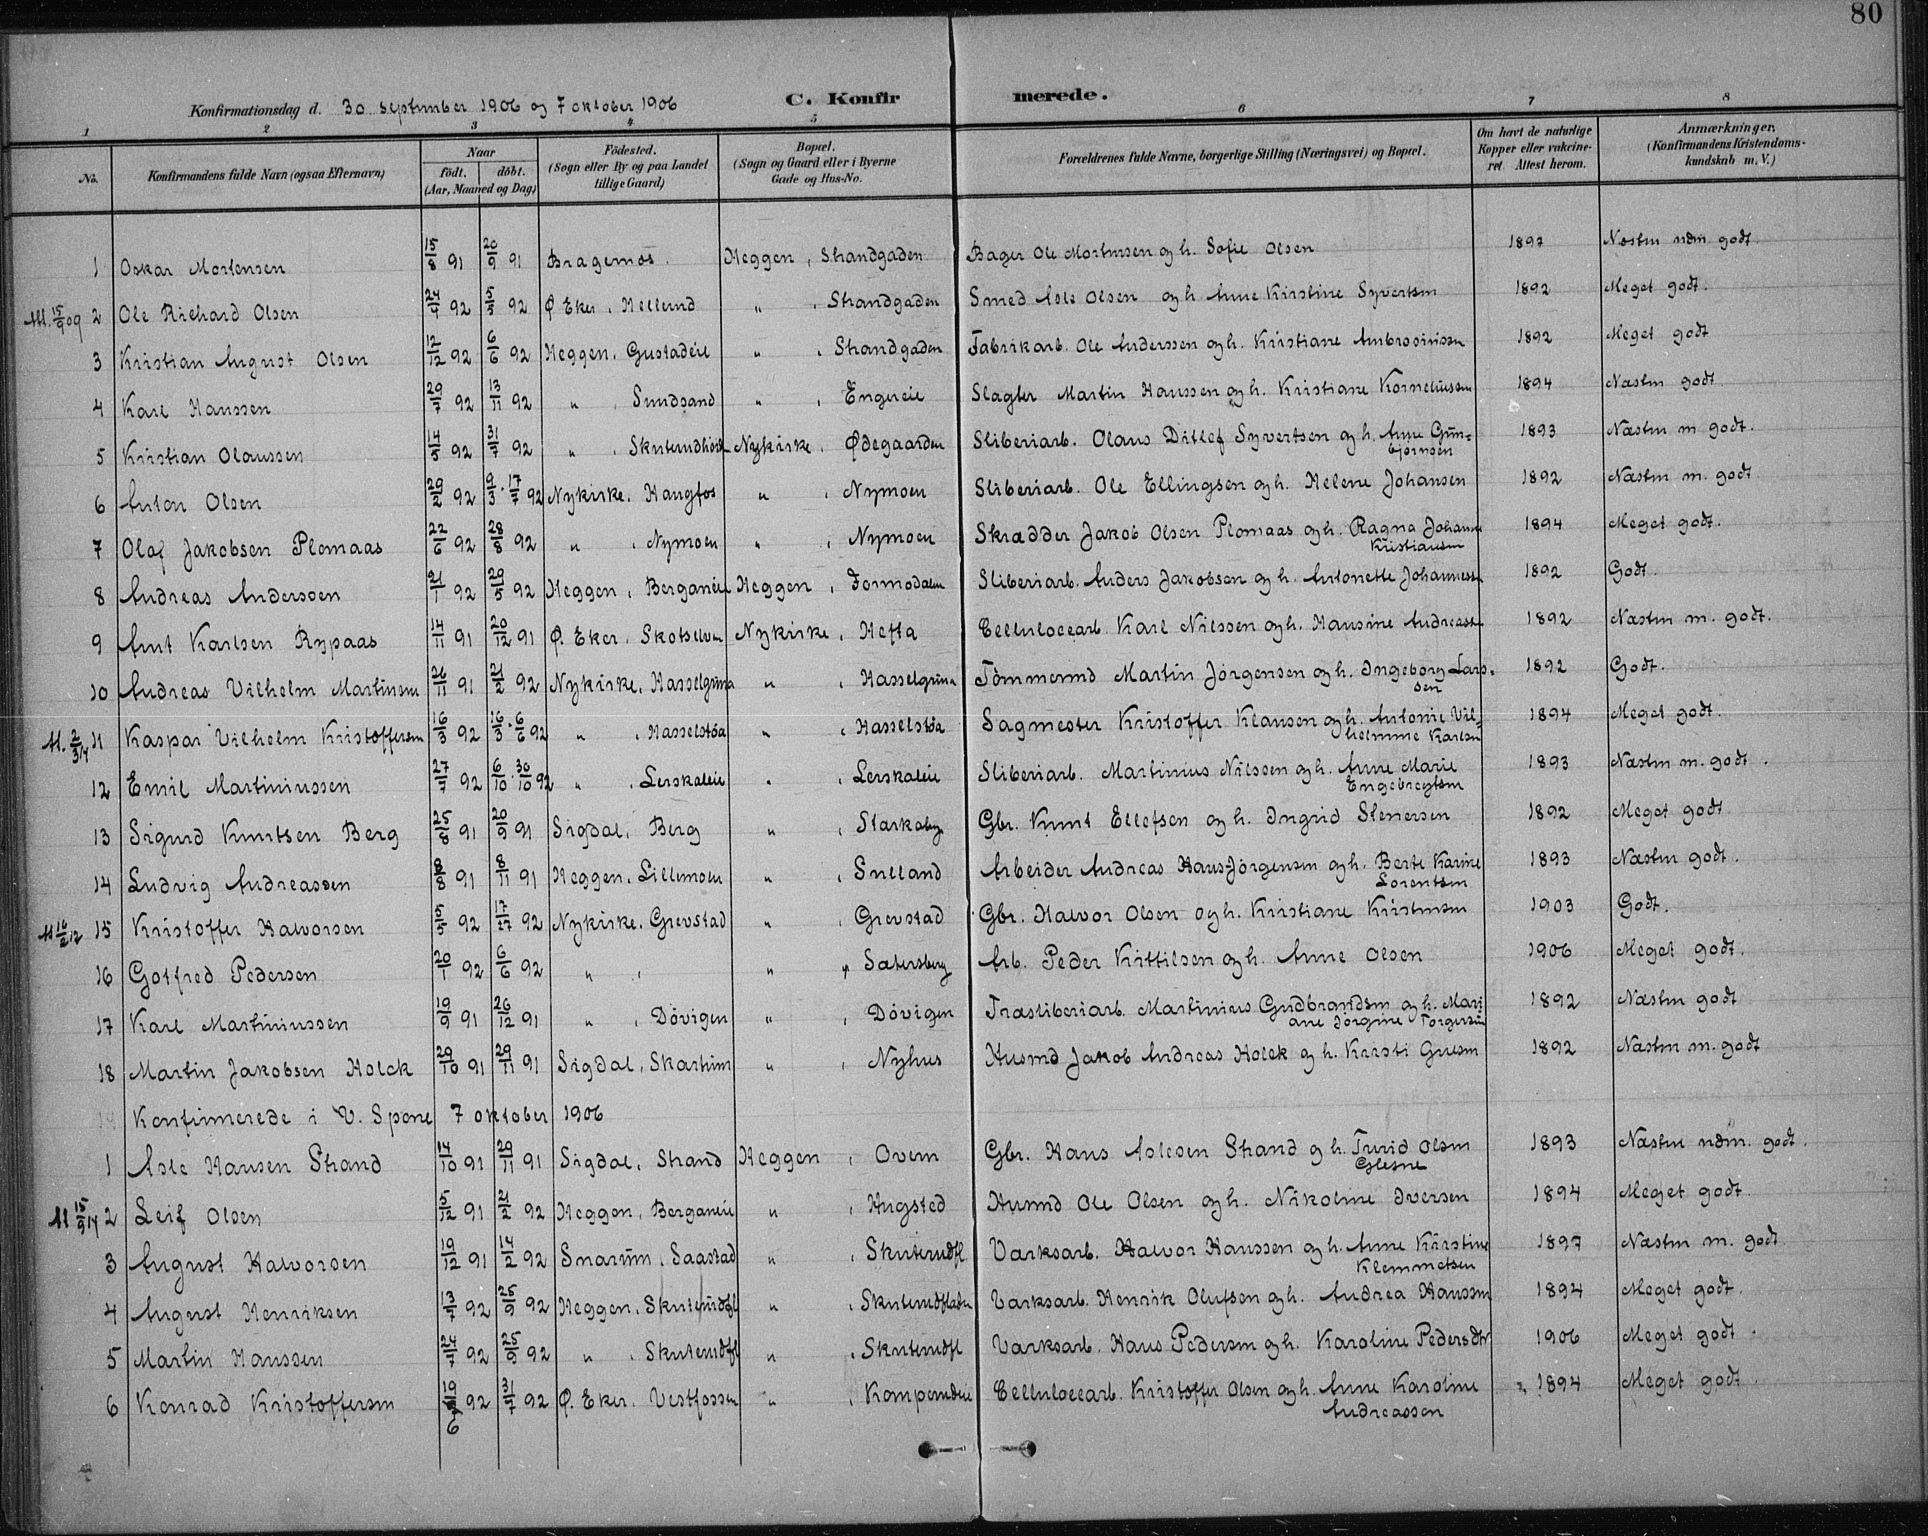 80
Konfirmationsdag d. 30 september 1906 og 7 oktober 1906 C. Konfir merede.
1 2 3 4 5 6 7 8
No. Konfirmandens fulde Navn (ogsaa Efternavn) Naar født. døbt. (Aar, Maaned og Dag) Fødested. (Sogn eller By og paa Landet tillige Gaard) Bopæl. (Sogn og Gaard eller i Byerne Gade og Hus-No. Forældrenes fulde Navne, borgerlige Stilling (Næringsvei) og Bopæl. Om havt de naturlige Kopper eller vakcineret. Attest herom. Anmærkninger. (Konfirmandens Kristendomskundskab m. V.)
1 Oskar Mortensen 15/8 91 20/9 91 Bragernes. Heggen, Strandgaden Bager Ole Mortensen og h. Sofie Olsen 1897 Næsten udm. godt.
M. 15/9 09 2 Ole Richard Olsen 24/4 92 5/5 92 Ø Eker, Hellund " , Strandgaden Smed Asle Olsen og h. Anne Kirstine Syvertsen 1892 Meget godt.
3 Kristian August Olsen 92 6/6 92 Heggen, Gustadeie " , Strandgaden Fabrikarb. Ole Anderssen og h. Kristiane Ambrosiussen 1892 Meget godt
4 Karl Hanssen 29/7 92 13/11 92 " , Sundsand " , Engereie Slagter Martin Hanssen og h. Kristiane Korneliussen 1894 Næsten godt.
5 Kristian Olaussen 14/5 92 31/7 92 " , Nykirke, Ødegaarden Sliberiarb. Olaus Ditlef Syvertsen og h. Anne Gun=
bjørnsen 1893 Næsten m godt.
6 Anton Olsen 29/2 92 9/3 · 17/7 92 Nykirke, Haugfos " , Nymoen Sliberiarb. Ole Ellingsen og h. Helene Johansen 1892 Næsten m. godt
7 Olaf Jakobsen Plomaas 22/6 92 28/8 92 " , Nymoen " , Nymoen Skrædder Jakob Olsen Plomaas og h. Ragna Johanne
Kristiansen 1894 Meget godt.
8 Andreas Anderssen 21/1 92 29/5 92 Heggen, Berganeie Heggen, Formodalen Sliberiarb. Anders Jakobsen og h. Antonette Johannessen 1892 Godt.
9 Amt Karlsen Rypaas 14/11 91 20/12 91 Ø. Eker, Skotselven Nykirke, Hefta Cellulocearb. Karl Nilssen og h. Hansine Andreassen 1892 Næsten m. godt.
10 Andreas Vilhelm Martinsen 26/11 91 21/2 92 Nykirke, Hasselgrina " , Hasselgrina Tømmermd Martin Jørgensen og h. Ingeborg Lars=
sen 1892 Godt.
M. 2/3 14 11 Kaspar Vilhelm Kristoffersen 16/3 92 16/3 · 6/6 92 " , Hasselstøa " , Hasselstøa Sagmester Kristoffer Klausen og h. Antonie Vil=
helmine Karlsen 1894 Meget godt.
12 Emil Martiniussen 27/7 92 6/10 · 30/10 92 " , Lerskaleie " , Lerskaleie Sliberiarb. Martinius Nilssen og h. Anne Marie
Engebregtsen 1893 Næsten m. godt.
13 Sigurd Knutsen Berg 25/8 91 20/9 91 Sigdal, Berg " , Gbr. Knut Ellefsen og h. Ingrid Stenersen 1892 Meget godt
14 Ludvig Andreassen 8/8 91 8/11 91 Heggen, Lillemoen " , Sulland Arbeider Andreas Hans-Jørgensen og h. Berte Karine
Lorentsen 1893 Næsten godt.
M 16/2 12 15 Kristoffer Halvorsen 5/5 92 92 Nykirke, Grevstad " , Grevstad Gbr. Halvor Olsen og h. Kristiane Kristensen 1903 Godt.
16 Gotfred Pedersen 20/1 92 6/6 92 " , " , Satersberg Arb. Peder Kittilsen og h. Anne Olsen 1906 Meget godt.
17 Karl Martiniussen 19/9 91 26/12 91 " , Døvigen " , Døvigen Træsliberiarb. Martinius Gudbrandsen og h. Mari
ane Jørgine Torgersen 1892 Næsten godt
18 Martin Jakobsen Holck 20/10 91 29/11 91 Sigdal, Skartum " , Nyhus Husmd Jakob Andreas Holck og h. Kristi 1892 Næsten m. godt
Konfirmerede i V. Spone 7 oktober 1906
1 Asle Hansen Strand 14/10 91 29/11 91 Sigdal, Strand Heggen, Overn Gbr. Hans Aslesen Strand og h. Turid Olsen
Glesne 1893 Næsten udm. godt.
M 15/9 14 2 Leif Olsen 5/12 91 21/2 92 Heggen, Berganeie " , Hugsted Husmd Ole Olsen og h. Nikoline Iversen 1894 Meget godt.
3 August Halvorsen 19/12 91 14/2 92 Snarum, Saastad " , Skuterudfl. Værksarb. Halvor Hanssen og h. Anne Kirstine
Klemmetsen 1897 Næsten m. godt.
4 August Henriksen 13/7 92 25/9 92 Heggen, Skuterudfl " , Skuterudflaten Værksarb. Henrik Olufsen og h. Andrea Hanssen 1894 Meget godt.
5 Martin Hanssen 24/7 92 25/9 92 " , Skuterudfl " , Skuterudfl Værksarb. Hans Pedersen og h. Karoline Pedersdtr 1906 Meget godt.
6 Konrad Kristoffersen 19/6 92 31/7 92 Ø. Eker, Vestfossen " , Cellulocearb. Kristoffer Olsen og h. Anne Karoline
Andreassen 1894 Meget godt.